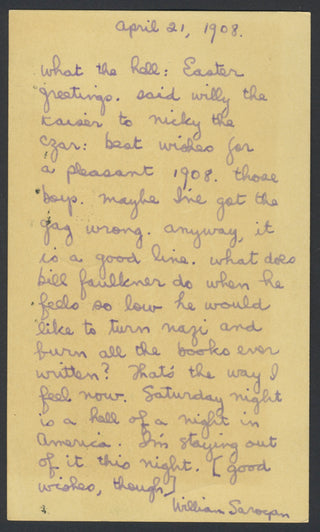 April 21, 1908.
what the hell: Easter
greetings. said willy the
Kaiser to nicky the
czar: best wishes for
a pleasant 1908. those
boys. maybe I've got the
gag wrong. anyway, it
is a good line. what does
bill faulkner do when he
feels so low he would
like to turn nazi and
burn all the books ever
written? That's the way I
feel now. Saturday night
is a hell of a night in
America. I'm staying out
of it this night. [good
wishes, though]
William Saroyan